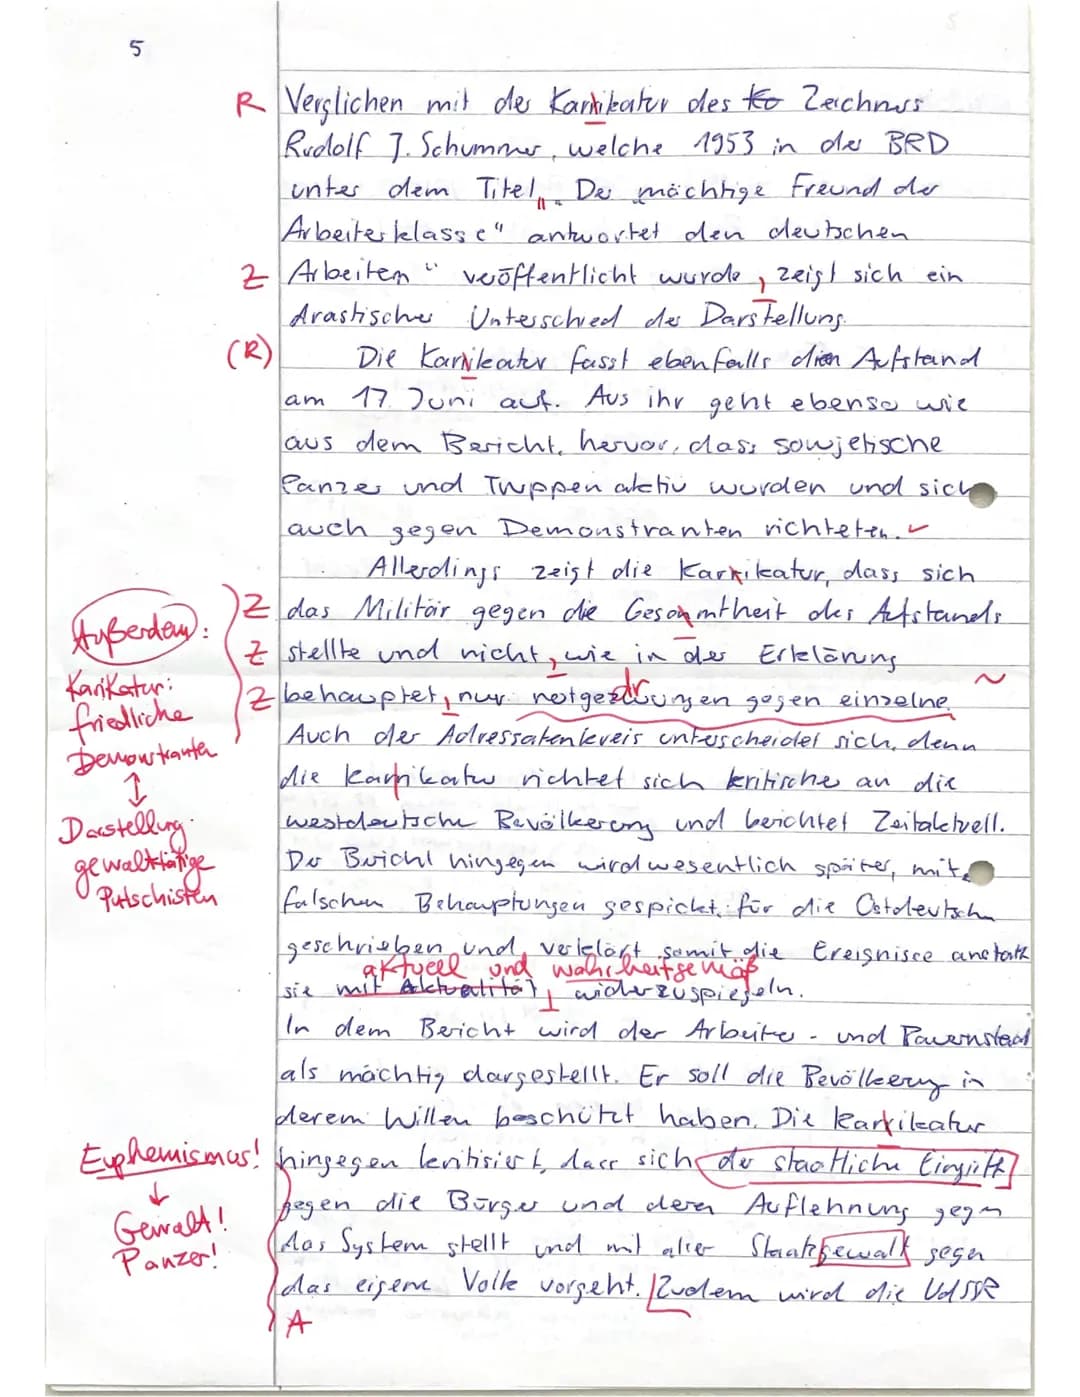 5
R Verglichen mit der Karrikatur des Zeichners
Rudolf J. Schummer, welche 1953 in der BRD
unter dem Titel „Der mächtige Freund der
Arbeiterklasse" antwortet den deutschen
Z Arbeitern" veröffentlicht wurde, zeigt sich ein
drastischer Unterschied der Darstellung.
(R) Die Karrikatur fasst ebenfalls den Aufstand
am 17. Juni auf. Aus ihr geht ebenso wie
aus dem Bericht, hervor, dass sowjetische
Panzer und Truppen aktiv wurden und sich
auch gegen Demonstranten richteten. ✓
Allerdings zeigt die Karrikatur, dass sich
Z das Militär gegen die Gesammtheit des Aufstands
Z stellte und nicht, wie in der Erklärung
Z behauptet, nur notgedrungen gegen einzelne.
Außerdem:
Karikatur:
friedliche
Demonstranten
↕
Darstellung
gewalttätige
Putschisten
Auch der Adressatenkreis unterscheidet sich, denn
die Karrikatur richtet sich kritische an die
westdeutsche Bevölkerung und berichtet Zeitaktuell.
Der Bericht hingegen wird wesentlich später, mit
falschen Behauptungen gespickt, für die Ostdeutschen
geschrieben und verklärt somit die Ereignisse anstatt
aktuell und wahrheitsgemäß
sie mit Aktualität widerzuspiegeln.
In dem Bericht wird der Arbeiter- und Bauernstaat
als mächtig dargestellt. Er soll die Bevölkerung in
derem Willen beschützt haben. Die Karrikatur
Euphemismus!
↓
Gewalt!
Panzer!
hingegen kritisiert, dass sich der staatliche Eingriff
gegen die Bürger und deren Auflehnung gegen
das System stellt und mit aller Staatsgewalt gegen
das eigene Volk vorgeht. Zudem wird die UdSSR
A